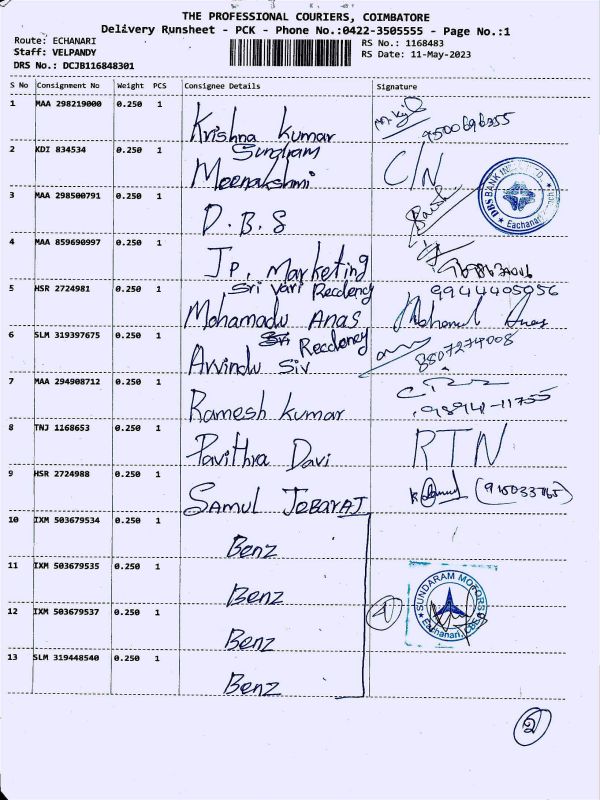 THE PROFESSIONAL COURIERS, COIMBATORE
Delivery Runsheet - PCK - Phone No.:0422-3505555 - Page No.:1
Route: ECHANARI
Staff: VELPANDY
DRS No.: DCJB116848301
RS No.: 1168483
RS Date: 11-May-2023
S No Consignment No Weight PCS Consignee Details Signature
1 MAA 298219000 0.250 1 Krishna Kumar
2 KDI 834534 0.250 1 Sundram
Meenakshmi C/N
3 MAA 298500791 0.250 1 D.B.S
DBS BANK
Eachanari
4 MAA 859690997 0.250 1 JP. Marketing
5 HSR 2724981 0.250 1 Sri Vari Recdency 9944405956
Mohamadu Anas
6 SLM 319397675 0.250 1 Recdency 8807274008
Arvindu Siv
7 MAA 294908712 0.250 1 Ramesh Kumar 98941-11755
8 TNJ 1168653 0.250 1 Pavithra Davi RTN
9 HSR 2724988 0.250 1 Samul JEBARAJ
10 IXM 503679534 0.250 1 Benz
11 IXM 503679535 0.250 1 Benz
12 IXM 503679537 0.250 1 Benz
SUNDARAM MOTORS
Eachanari, CBE
13 SLM 319448540 0.250 1 Benz